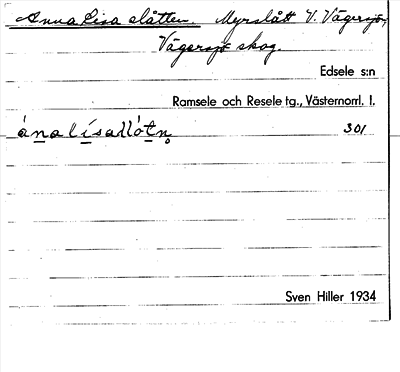 Anna Lisa slåtten Myrslått V. Vägersjö,
Vägersjö skog.
Edsele s:n
Ramsele och Resele tg., Västernorrl. l.
301
Sven Hiller 1934